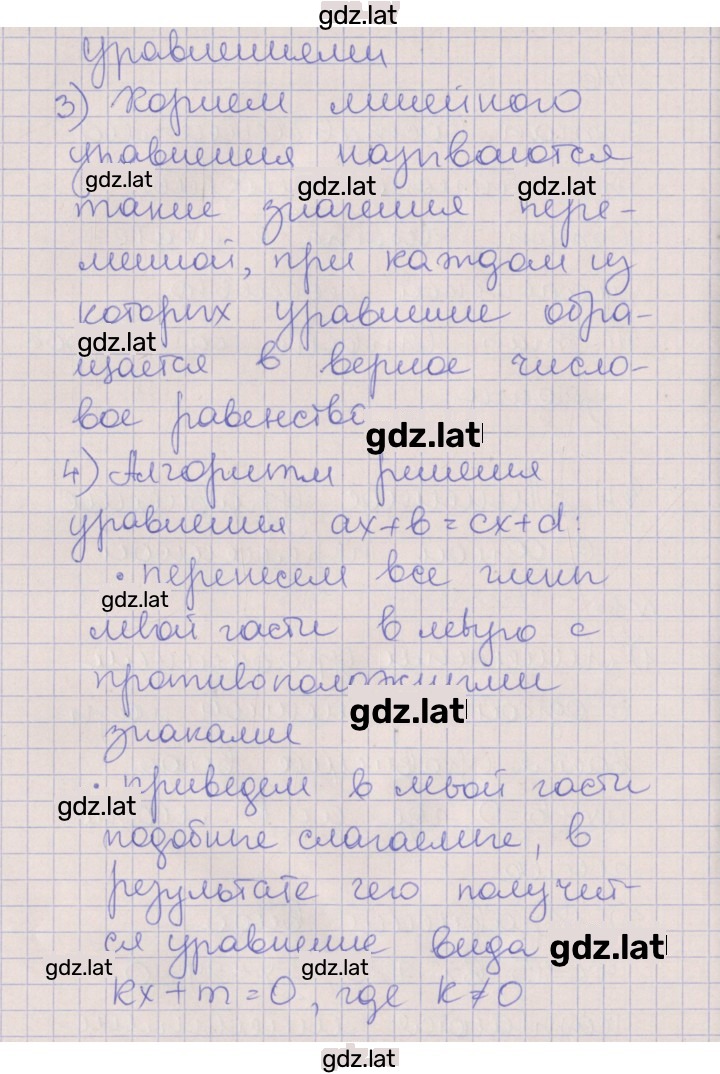 gdz.lat
уравнениями
3) Корнем линейного
уравнения называются
gdz.lat gdz.lat gdz.lat
такие значения пере-
менной, при каждом из
которых уравнение обра-
gdz.lat
щается в верное число-
вое равенство
gdz.lat
4) Алгоритм решения
уравнения ax+b=cx+d:
• перенесем все члены
gdz.lat
левой части в левую с
противоположными
gdz.lat
знаками
• приведем в левой части
gdz.lat
подобные слагаемые, в
результате чего получит-
ся уравнение вида
gdz.lat
gdz.lat gdz.lat
kx+m=0, где k≠0
gdz.lat